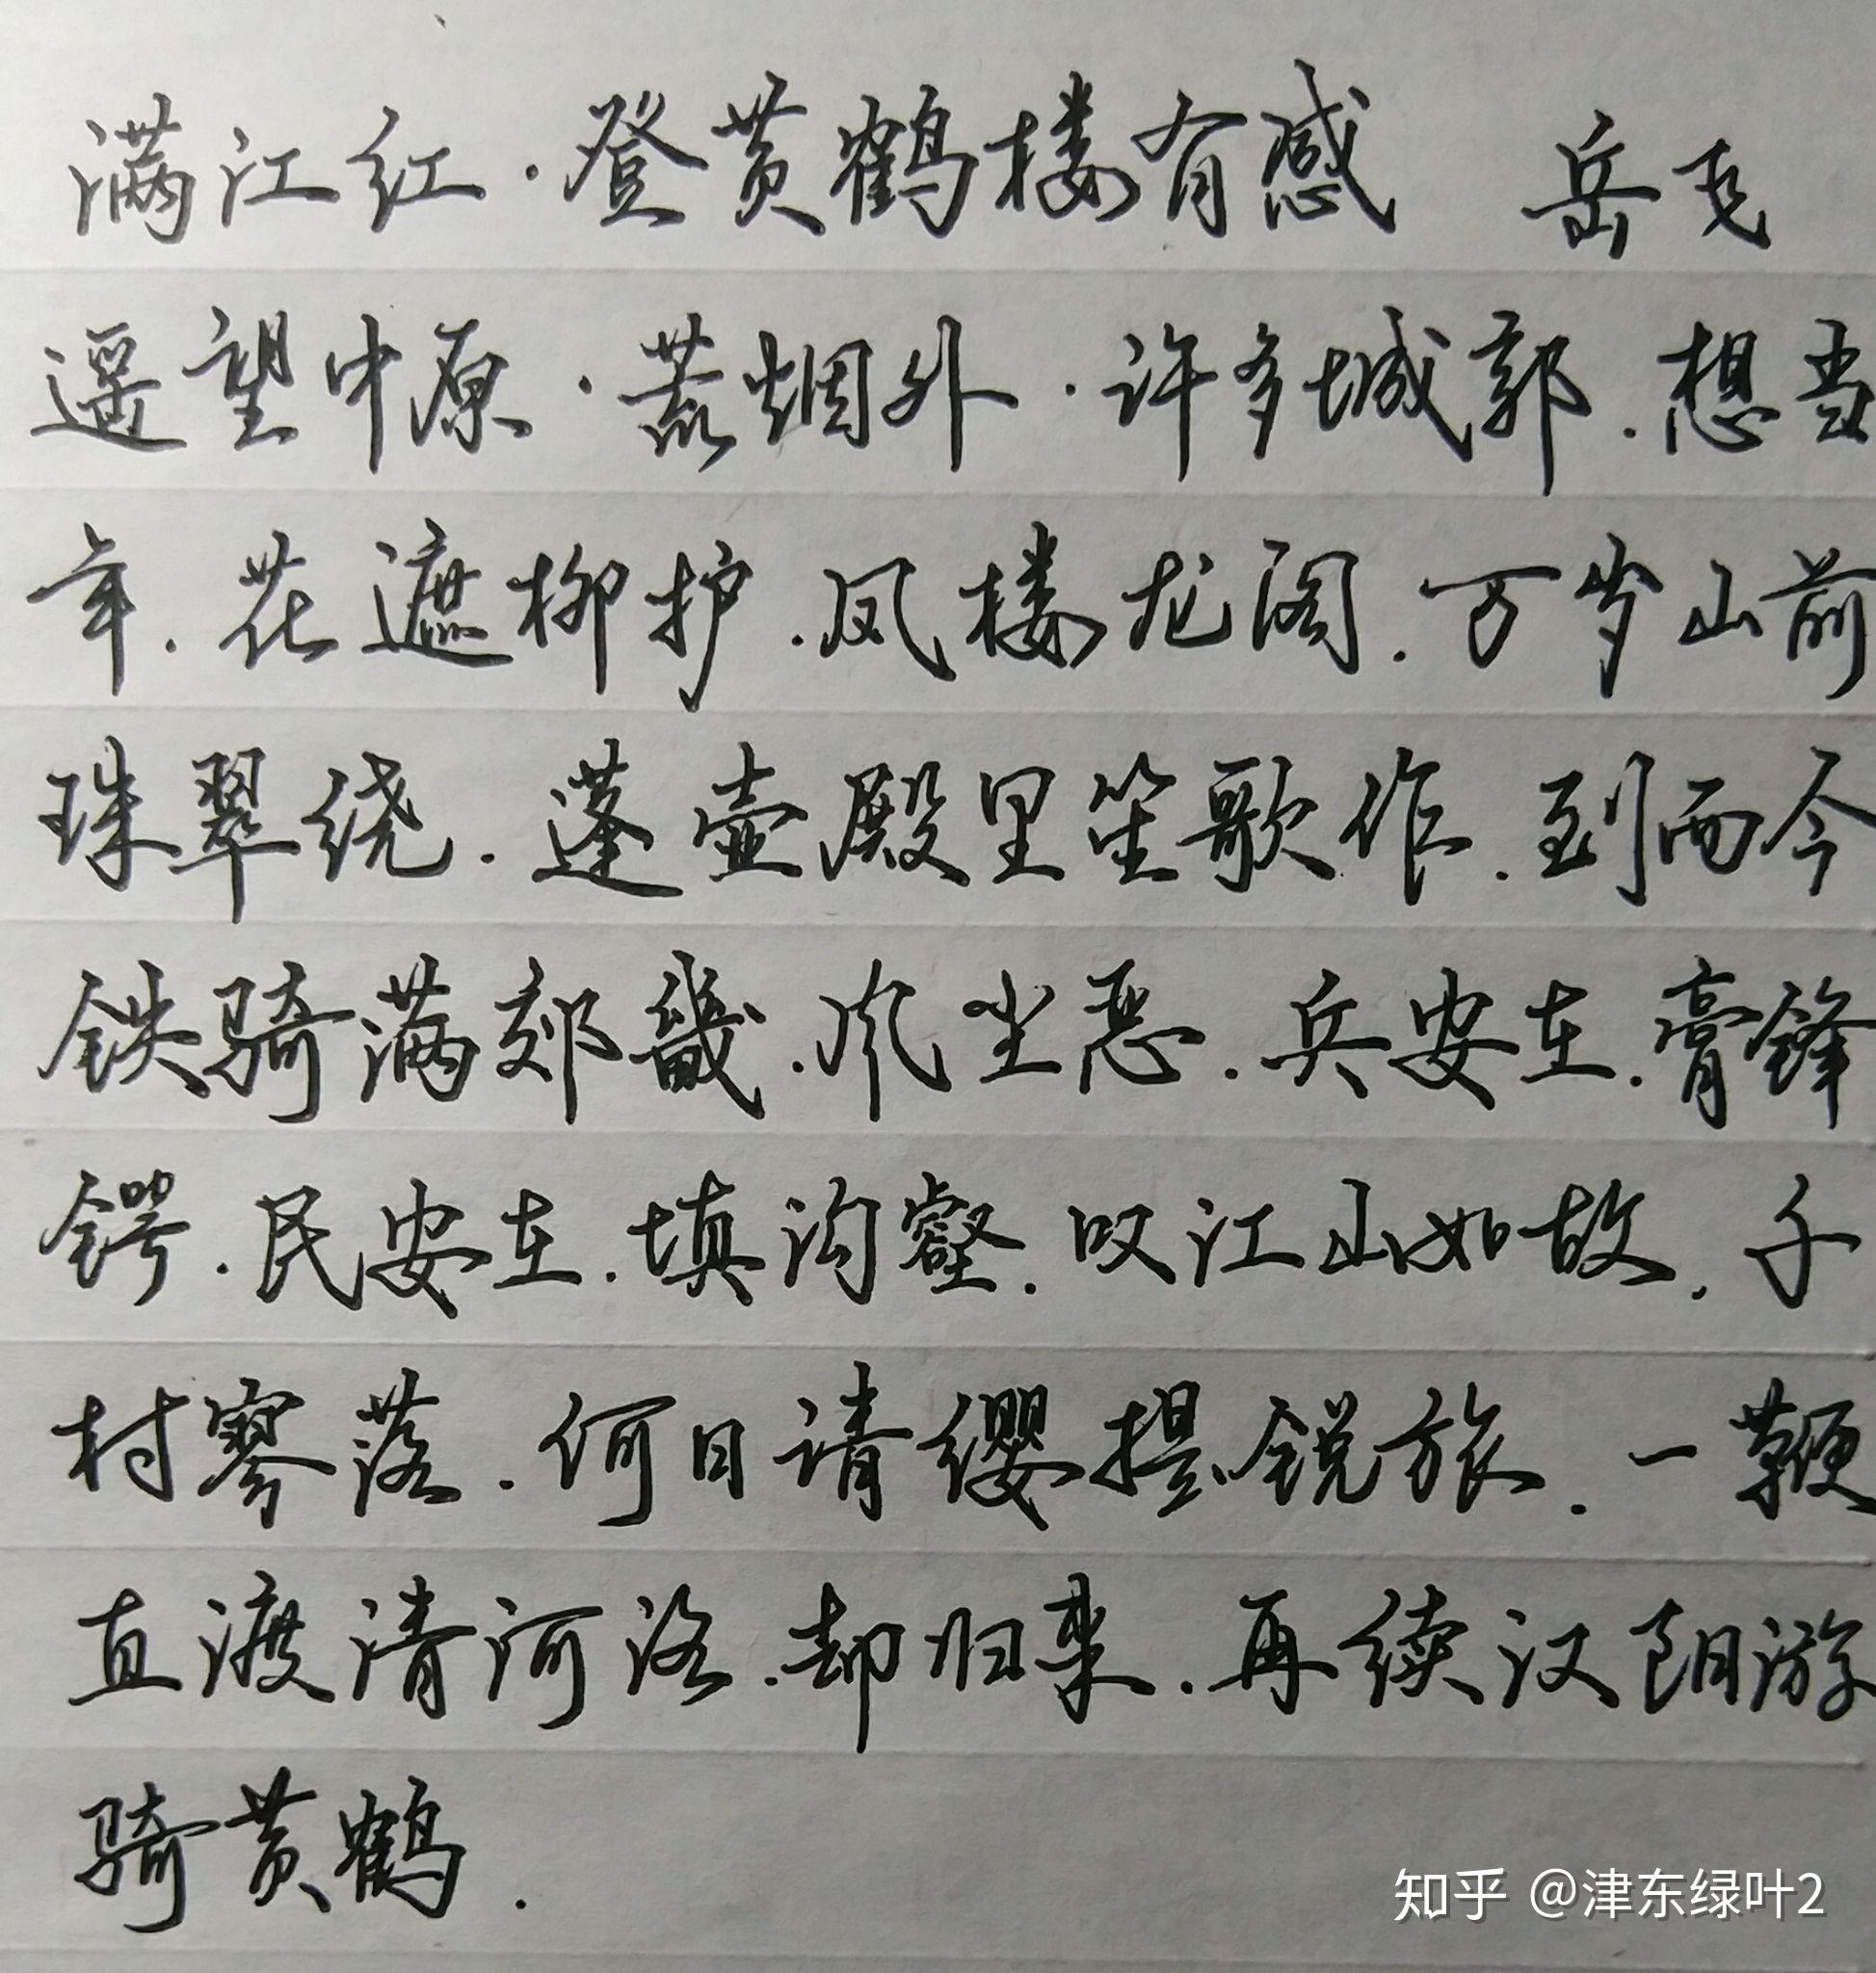 满江红·登黄鹤楼有感 岳飞
遥望中原·荒烟外·许多城郭.想当
年.花遮柳护.凤楼龙阁.万岁山前
珠翠绕.蓬壶殿里笙歌作.到而今
铁骑满郊畿.风尘恶.兵安在.膏锋
锷.民安在.填沟壑.叹江山如故.千
村寥落.何日请缨提锐旅.一鞭
直渡清河洛.却归来.再续汉阳游
骑黄鹤.
知乎 @津东绿叶2